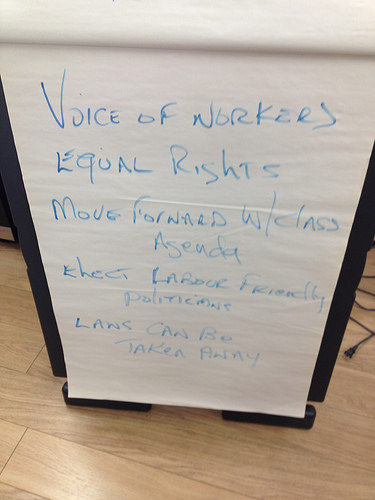 VOICE OF WORKERS
EQUAL RIGHTS
MOVE FORWARD W/CLASS
Agenda
ELECT LABOUR FRIENDly
POLITICIANS
LAWS CAN BE
TAKEN AWAY